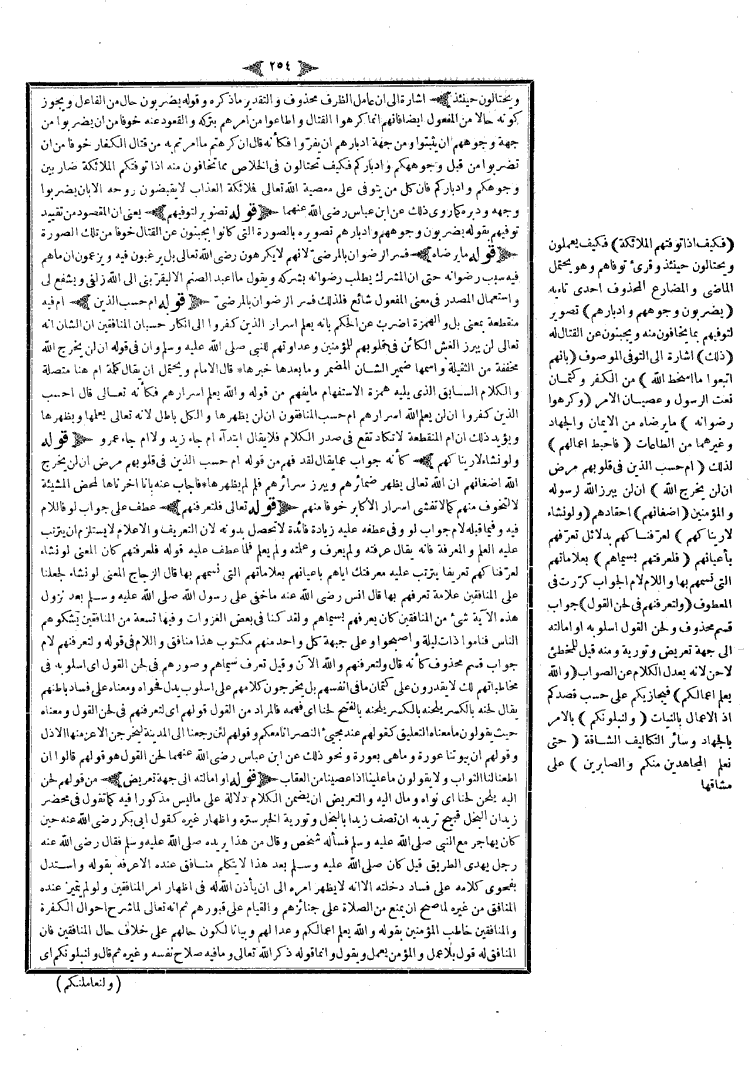 ﴿ ٢٥٤ ﴾
ويحتالون حينئذ ﴾ اشارة الى ان عامل الظرف محذوف والتقدير ماذكره وقوله يضربون حال من الفاعل ويجوز
كونه حالا من المفعول ايضا فانهم انما كرهوا القتال و اطاعوا من امرهم بتركه والقعود عنه خوفا من ان يضربوا من
جهة وجوههم ان يثبتوا ومن جهة ادبارهم ان يفرّوا فكأنه قال ان كرهتم ما امرتم به من قتال الكفار خوفا من ان
تضربوا من قبل وجوهكم و ادباركم فكيف تحتالون فى الخلاص مما تخافون منه اذا توفتكم الملائكة ضاربين
وجوهكم و ادباركم فان كل من يتوفى على معصية الله تعالى فلائكة العذاب لايقبضون روحه الا بان يضربوا
وجهه ودبره كما روى ذلك عن ابن عباس رضى الله عنهما ﴿ قوله تصوير لتوفيهم ﴾ يعنى ان المقصود من تقييد
توفيهم بقوله يضربون وجوههم وادبارهم تصويره بالصورة التى كانوا يجبنون عن القتال خوفا من تلك الصورة
﴿ قوله ما يرضاه ﴾ فسر الرضوان بالمرضىّ لانهم لا يكرهون رضى الله تعالى بل يرغبون فيه و يزعمون ان ماهم
فيه سبب رضوانه حتى ان المشرك يطلب رضوانه بشركه ويقول ما اعبد الصنم الا ليقربنى الى الله زلفى و يشفع لى
و استعمال المصدر فى معنى المفعول شائع فلذلك فسر الرضوان بالمرضىّ ﴿ قوله ام حسب الذين ﴾ ام فيه
منقطعة بمعنى بل والهمزة اضرب عن الحكم بانه يعلم اسرار الذين كفروا الى انكار حسبان المنافقين ان الشان انه
تعالى لن يبرز الغش الكائن فى قلوبهم للمؤمنين وعداوتهم للنبى صلى الله عليه وسلم وان فى قوله ان لن يخرج الله
مخففة من الثقيلة و اسمها ضمير الشان المضمر وما بعدها خبرها * قال الامام ويحتمل ان يقال كلمة ام هنا متصلة
والكلام السابق الذى يليه همزة الاستفهام ما يفهم من قوله والله يعلم اسرارهم فكأنه تعالى قال احسب
الذين كفروا ان لن يعلم الله اسرارهم ام حسب المنافقون ان لن يظهرها و الكل باطل لانه تعالى يعلمها ويظهرها
و يؤيد ذلك ان ام المنقطعة لا تكاد تقع فى صدر الكلام فلا يقال ابتدآء ام جاء زيد ولا ام جاء عمرو ﴿ قوله
ولو نشاء لاريناكهم ﴾ كأنه جواب عما يقال لقد فهم من قوله ام حسب الذين فى قلوبهم مرض ان لن يخرج
الله اضغانهم ان الله تعالى يظهر ضمائرهم و يبرز سرائرهم فلم لم يظهرها * فاجاب عنه بانا اخرناها لمحض المشيئة
لا لتخوف منهم كما لا تفشى اسرار الاكابر خوفا منهم ﴿ قوله تعالى فلعرفتهم ﴾ عطف على جواب لو فاللام
فيه وفيما قبله لام جواب لو وفى عطفه عليه زيادة فائدة لا تحصل بدونه لان التعريف والاعلام لا يستلزم ان يترتب
عليه العلم والمعرفة فانه يقال عرفته ولم يعرف وعلمته ولم يعلم فلما عطف عليه قوله فلعرفتهم كان المعنى لو نشاء
لعرّفناكهم تعريفا يترتب عليه معرفتك اياهم باعيانهم بعلاماتهم التى نسمهم بها قال الزجاج المعنى لو نشاء لجعلنا
على المنافقين علامة تعرفهم بها قال انس رضى الله عنه ماخفى على رسول الله صلى الله عليه وسلم بعد نزول
هذه الآية شئ من المنافقين كان يعرفهم بسيماهم ولقد كنا فى بعض الغزوات وفيها تسعة من المنافقين يشكوهم
الناس فناموا ذات ليلة واصبحوا وعلى جبهة كل واحد منهم مكتوب هذا منافق واللام فى قوله ولتعرفنهم لام
جواب قسم محذوف كأنه قال ولتعرفنهم والله الآن وقيل تعرف سيماهم وصورهم فى لحن القول اى اسلوبه فى
مخاطباتهم لك لا يقدرون على كتمان ما فى انفسهم بل يخرجون كلامهم على اسلوب يدل فحواه ومعناه على فساد باطنهم
يقال لحنه بالكسر يلحنه بالفتح لحنا اى فهمه فالمراد من القول قولهم اى لتعرفنهم فى لحن القول و معناه
حيث يقولون ما معناه التعليق كقولهم عند مجيئ النصر انا معكم وقولهم لئن رجعنا الى المدينة ليخرجن الاعز منها الاذل
وقولهم ان بيوتنا عورة وماهى بعورة ونحو ذلك عن ابن عباس رضى الله عنهما لحن القول هو قولهم قالوا ان
اطعنا لنا الثواب و لا يقولون ما علينا اذا عصينا من العقاب ﴿ قوله او امالته الى جهة تعريض ﴾ من قولهم لحن
اليه يلحن لحنا اى نواه ومال اليه والتعريض ان يضمن الكلام دلالة على ماليس مذكورا فيه كما تقول فى محضر
زيد ان البخل قبيح تريد به ان تصف زيدا بالبخل و تورية الخبر ستره واظهار غيره كقول ابى بكر رضى الله عنه حين
كان يهاجر مع النبى صلى الله عليه وسلم فسأله شخص وقال من هذا يريده صلى الله عليه وسلم فقال رضى الله عنه
رجل يهدى الطريق قيل كان صلى الله عليه وسلم بعد هذا لا يتكلم منافق عنده الا عرفه بقوله و استدل
بفحوى كلامه على فساد دخلته الا انه لا يظهر امره الى ان يأذن الله له فى اظهار امر المنافقين ولو لم يتميز عنده
المنافق من غيره لما صح ان يمنع من الصلاة على جنائزهم و القيام على قبورهم ثم انه تعالى لما شرح احوال الكفرة
والمنافقين خاطب المؤمنين بقوله والله يعلم اعمالكم وعدا لهم وبيانا لكون حالهم على خلاف حال المنافقين فان
المنافق له قول بلا عمل والمؤمن يعمل ويقول وانما قوله ذكر الله تعالى وما فيه صلاح نفسه وغيره ثم قال ولنبلونكم اى
( ولنعاملنكم )
( فكيف اذا توفتهم الملائكة ) فكيف يعملون
ويحتالون حينئذ وقرئ توفاهم وهو يحتمل
الماضى والمضارع المحذوف احدى تاءيه
( يضربون وجوههم وادبارهم ) تصوير
لتوفيهم بما يخافون منه ويجبنون عن القتال له
( ذلك ) اشارة الى التوفى الموصوف ( بانهم
اتبعوا ما اسخط الله ) من الكفر وكتمان
نعت الرسول وعصيان الامر ( وكرهوا
رضوانه ) مايرضاه من الايمان والجهاد
وغيرهما من الطاعات ( فاحبط اعمالهم )
لذلك ( ام حسب الذين فى قلوبهم مرض
ان لن يخرج الله ) ان لن يبرز الله لرسوله
و المؤمنين ( اضغانهم ) احقادهم ( ولو نشاء
لاريناكهم ) لعرّفناكهم بدلائل تعرفهم
بأعيانهم ( فلعرفتهم بسيماهم ) بعلاماتهم
التى نسمهم بها واللام لام الجواب كرّرت فى
المعطوف ( ولتعرفنهم فى لحن القول ) جواب
قسم محذوف ولحن القول اسلوبه او امالته
الى جهة تعريض وتورية ومنه قيل للمخطئ
لاحن لانه يعدل الكلام عن الصواب ( والله
يعلم اعمالكم ) فيجازيكم على حسب قصدكم
اذ الاعمال بالنيات ( ولنبلونكم ) بالامر
بالجهاد وسائر التكاليف الشاقة ( حتى
نعلم المجاهدين منكم والصابرين ) على
مشاقها